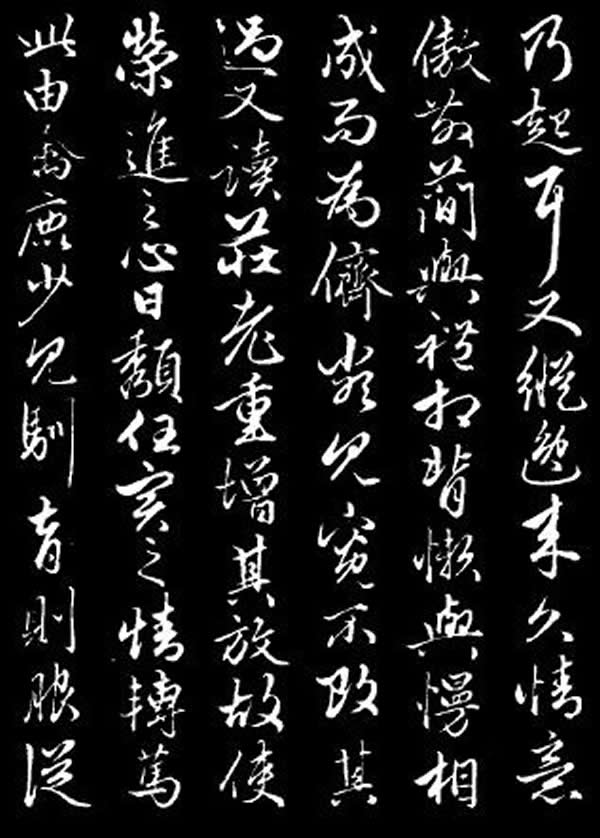 乃起耳又縱逸来久情意
傲散簡與禮相背懶與慢相
成而為儕類見寬不攻其
過又讀莊老重增其放故使
榮進之心日頽任實之情轉篤
此由禽鹿少見馴育則服從